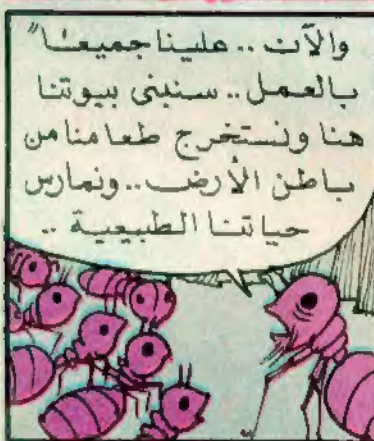 والآن .. علينا جميعًا
بالعمل .. سنبنى بيوتنا
هنا ونستخرج طعامنا من
باطن الأرض .. ونمارس
حياتنا الطبيعية ..